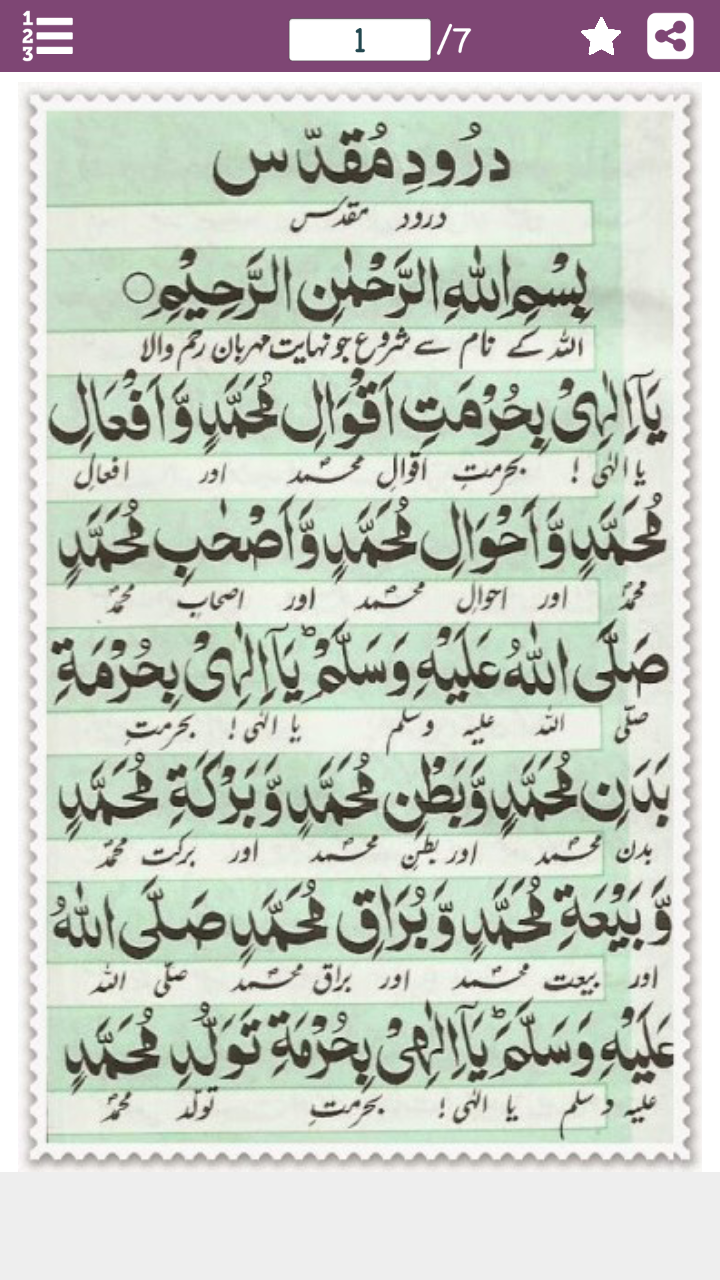 1 2 3
1 /7
درُودِ مُقدّس
درود مقدس
بِسْمِ اللّٰهِ الرَّحْمٰنِ الرَّحِيْمِ○
اللہ کے نام سے شروع جو نہایت مہربان رحم والا
يَاۤ اِلٰهِىْ بِحُرْمَتِ اَقْوَالِ مُحَمَّدٍ وَّاَفْعَالِ
یا الٰہی ! بحرمتِ اقوالِ محمد اور افعالِ
مُحَمَّدٍ وَّاَحْوَالِ مُحَمَّدٍ وَّاَصْحٰبِ مُحَمَّدٍ
محمدؐ اور احوالِ محمدؐ اور اصحابِ محمدؐ
صَلَّى اللّٰهُ عَلَيْهِ وَسَلَّمَ ؕ يَاۤ اِلٰهِىْ بِحُرْمَةِ
صلّی اللہ علیہ وسلم یا الٰہی ! بحرمتِ
بَدَنِ مُحَمَّدٍ وَّبَطْنِ مُحَمَّدٍ وَّبَرْكَةِ مُحَمَّدٍ
بدن محمدؐ اور بطنِ محمدؐ اور برکت محمدؐ
وَّبَيْعَةِ مُحَمَّدٍ وَّبُرَاقِ مُحَمَّدٍ صَلَّى اللّٰهُ
اور بیعت محمدؐ اور براق محمدؐ صلّی اللہ
عَلَيْهِ وَسَلَّمَ ؕ يَاۤ اِلٰهِىْ بِحُرْمَةِ تَوَلُّدِ مُحَمَّدٍ
علیہ وسلم یا الٰہی ! بحرمتِ تولّد محمدؐ